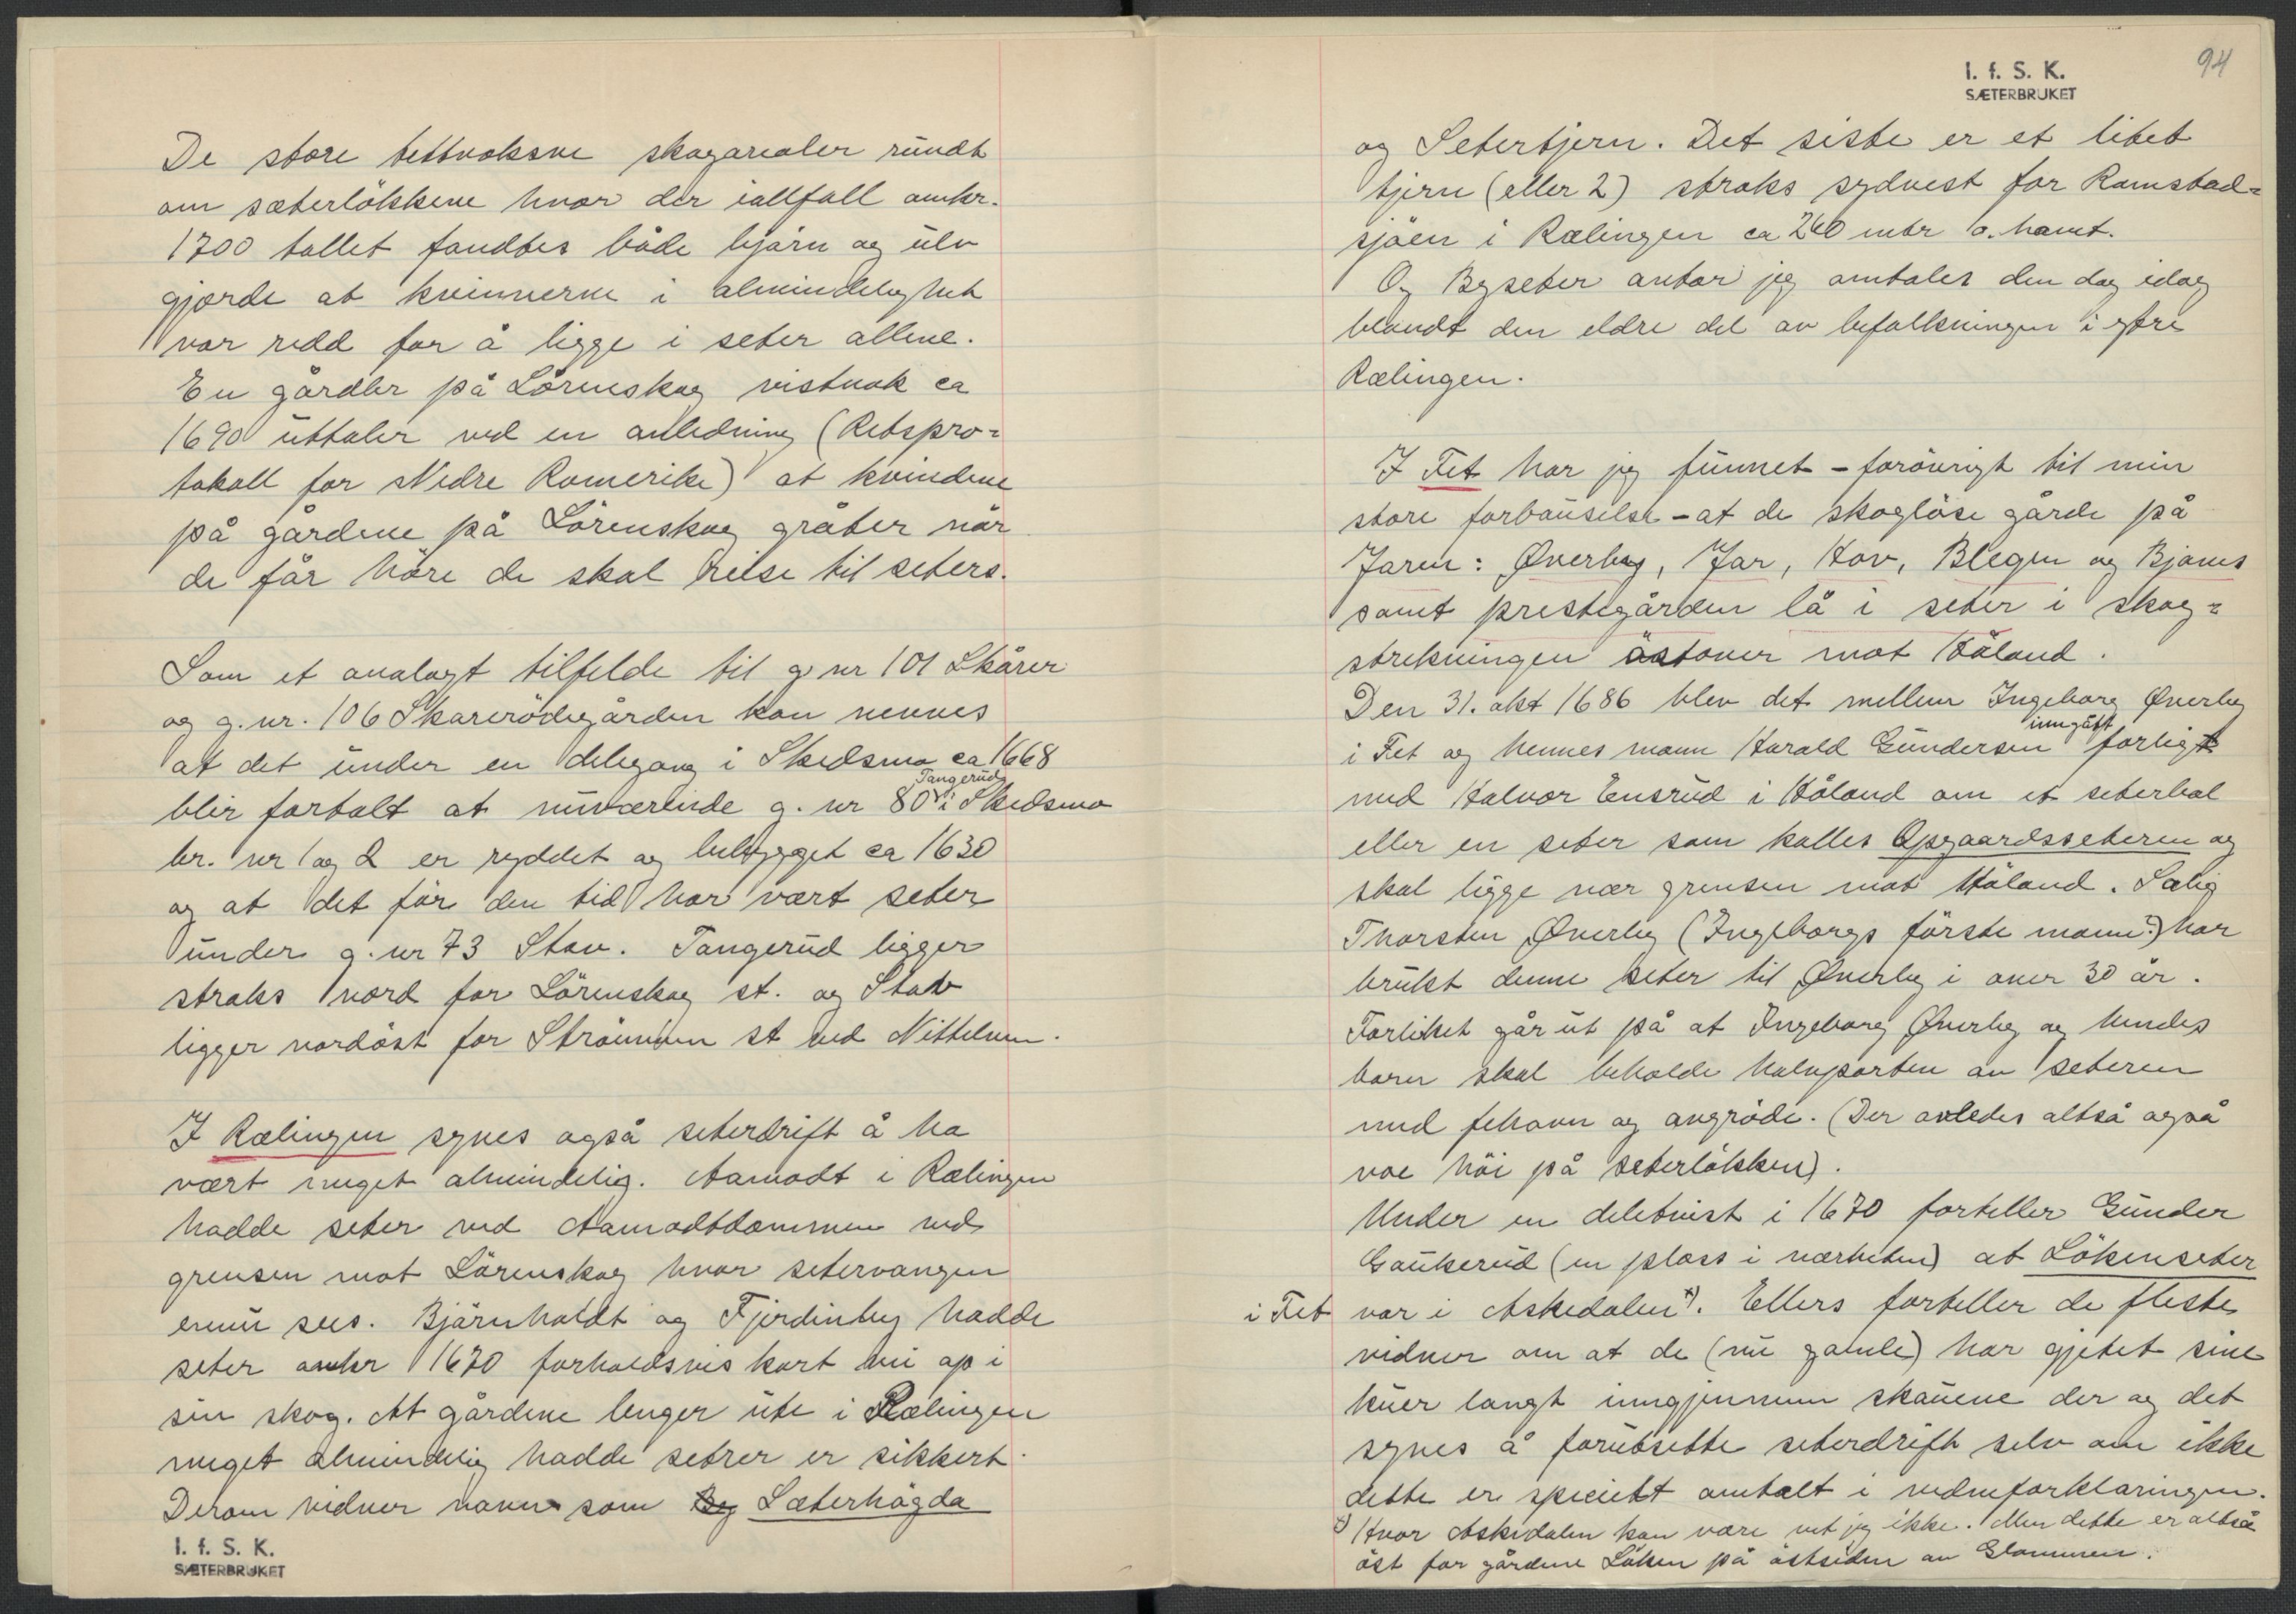 De store tettvoksne skogarealer rundt
om sæterlökkene hvor der iallfall omkr.
1700 tallet fandtes både björn og ulv
gjorde at kvinnerne i almindelighet
var redd for å ligge i seter allene.
En gårdbr på Lörenskog vistnok ca
1690 uttaler ved en anledning (Retspro=
tokoll for Nedre Romerike) at kvindene
på gårdene på Lörenskog gråter når
de får höre de skal reise til seters.
Som et analogt tilfelde til g nr 101 Skårer
og g. nr. 106 Skarerödegården kan nevnes
at det under en delegang i Skedsmo ca 1668
Tangerud
blir fortalt at nuværende g. nr 80 i Skedsmo
br. nr 1 og 2 er ryddet og bebygget ca 1630
og at det för den tid har vært seter
under g. nr 73 Stav. Tangerud ligger
straks nord for Lörenskog st. og Stav
ligger nordöst for Strömmen st ved Nittelven.
I Rælingen synes også seterdrift å ha
vært meget almindelig. Aamodt i Rælingen
hadde seter ved Aamodtdammen ved
grensen mot Lörenskog hvor setervangen
ennu sees. Björnholdt og Fjerdinby hadde
seter omkr 1670 forholdsvis kort vei op i
sin skog. At gårdene lenger ute i Rælingen
meget almindelig hadde setrer er sikkert.
Derom vidner navn som By Sæterhögda
I. f. S. K.
SÆTERBRUKET
I. f. S. K.
SÆTERBRUKET
94
og Setertjern. Det siste er et litet
tjern (eller 2) straks sydvest for Ramstad=
sjöen i Rælingen ca 240 mtr o. havet.
Og Byseter antar jeg omtales den dag idag
blandt den eldre del av befolkningen i ytre
Rælingen.
I Fet har jeg funnet - forövrigt til min
store forbauselse - at de skoglöse gårde på
Jaren: Øverby, Jar, Hov, Blegen og Bjanes
samt prestegården lå i seter i skog=
strekningen östover mot Höland.
Den 31. okt 1686 blev det mellem Ingeborg Øverby
inngått
i Fet og hennes mann Harald Gundersen forligt
med Halvor Ensrud i Höland om et seterbol
eller en seter som kalles Opgaardsseteren og
skal ligge nær grensen mot Höland. Salig
Thorsten Øverby (Ingeborgs förste mann?) har
brukt denne seter til Øverby i over 30 år.
Forliket går ut på at Ingeborg Øverby og hendes
barn skal beholde halvparten av seteren
med fehavn og avgröde. (Der avledes altså også
noe höi på seterlökken).
Under en deletvist i 1670 forteller Gunder
Gaukerud (en plass i nærheten) at Lökenseter
i Fet var i Askedalen x). Ellers forteller de fleste
vidner om at de (nu gamle) har gjetet sine
kuer langt inngjennem skauene der og det
synes å forutsette seterdrift selv om ikke
dette er specielt omtalt i vidneforklaringen.
x) Hvor Askedalen kan være vet jeg ikke. Men dette er altså
öst for gårdene Löken på östsiden av Glommen.